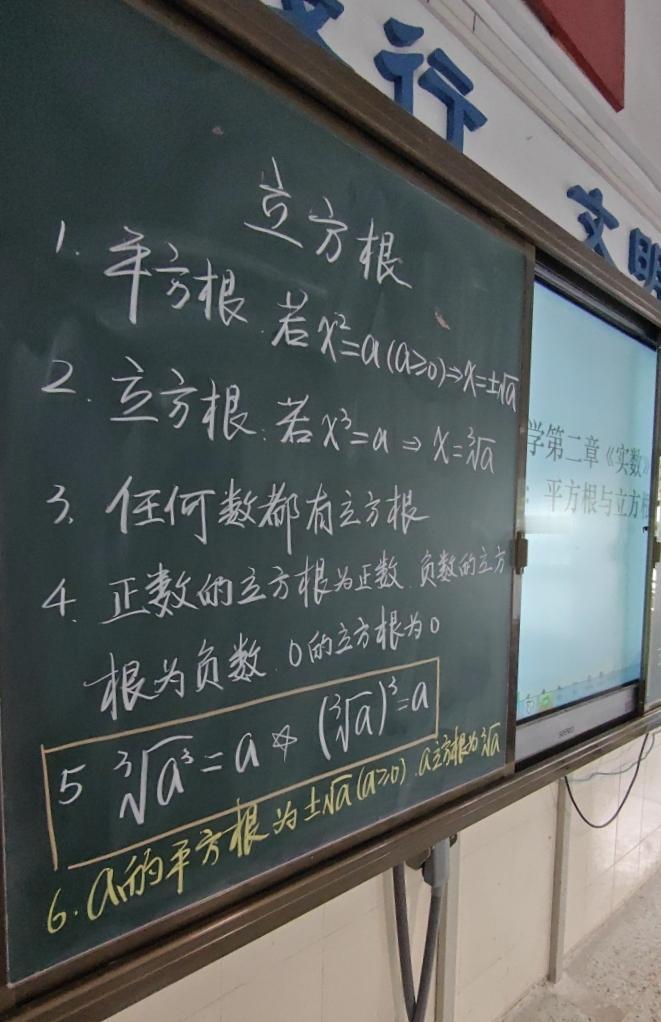 行
文明
立方根
1. 平方根. 若 x²=a (a≥0)⇒x=±√a
2. 立方根. 若 x³=a ⇒ x=³√a
3. 任何数都有立方根
4. 正数的立方根为正数. 负数的立方
根为负数. 0的立方根为0
5 ³√a³=a ☆ (³√a)³=a
6. a的平方根为±√a(a≥0). a立方根为³√a
学第二章《实数》
：平方根与立方根